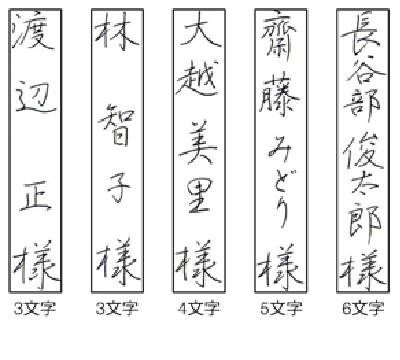 渡辺正様
林智子様
大越美里様
齋藤みどり様
長谷部俊太郎様
3文字
3文字
4文字
5文字
6文字